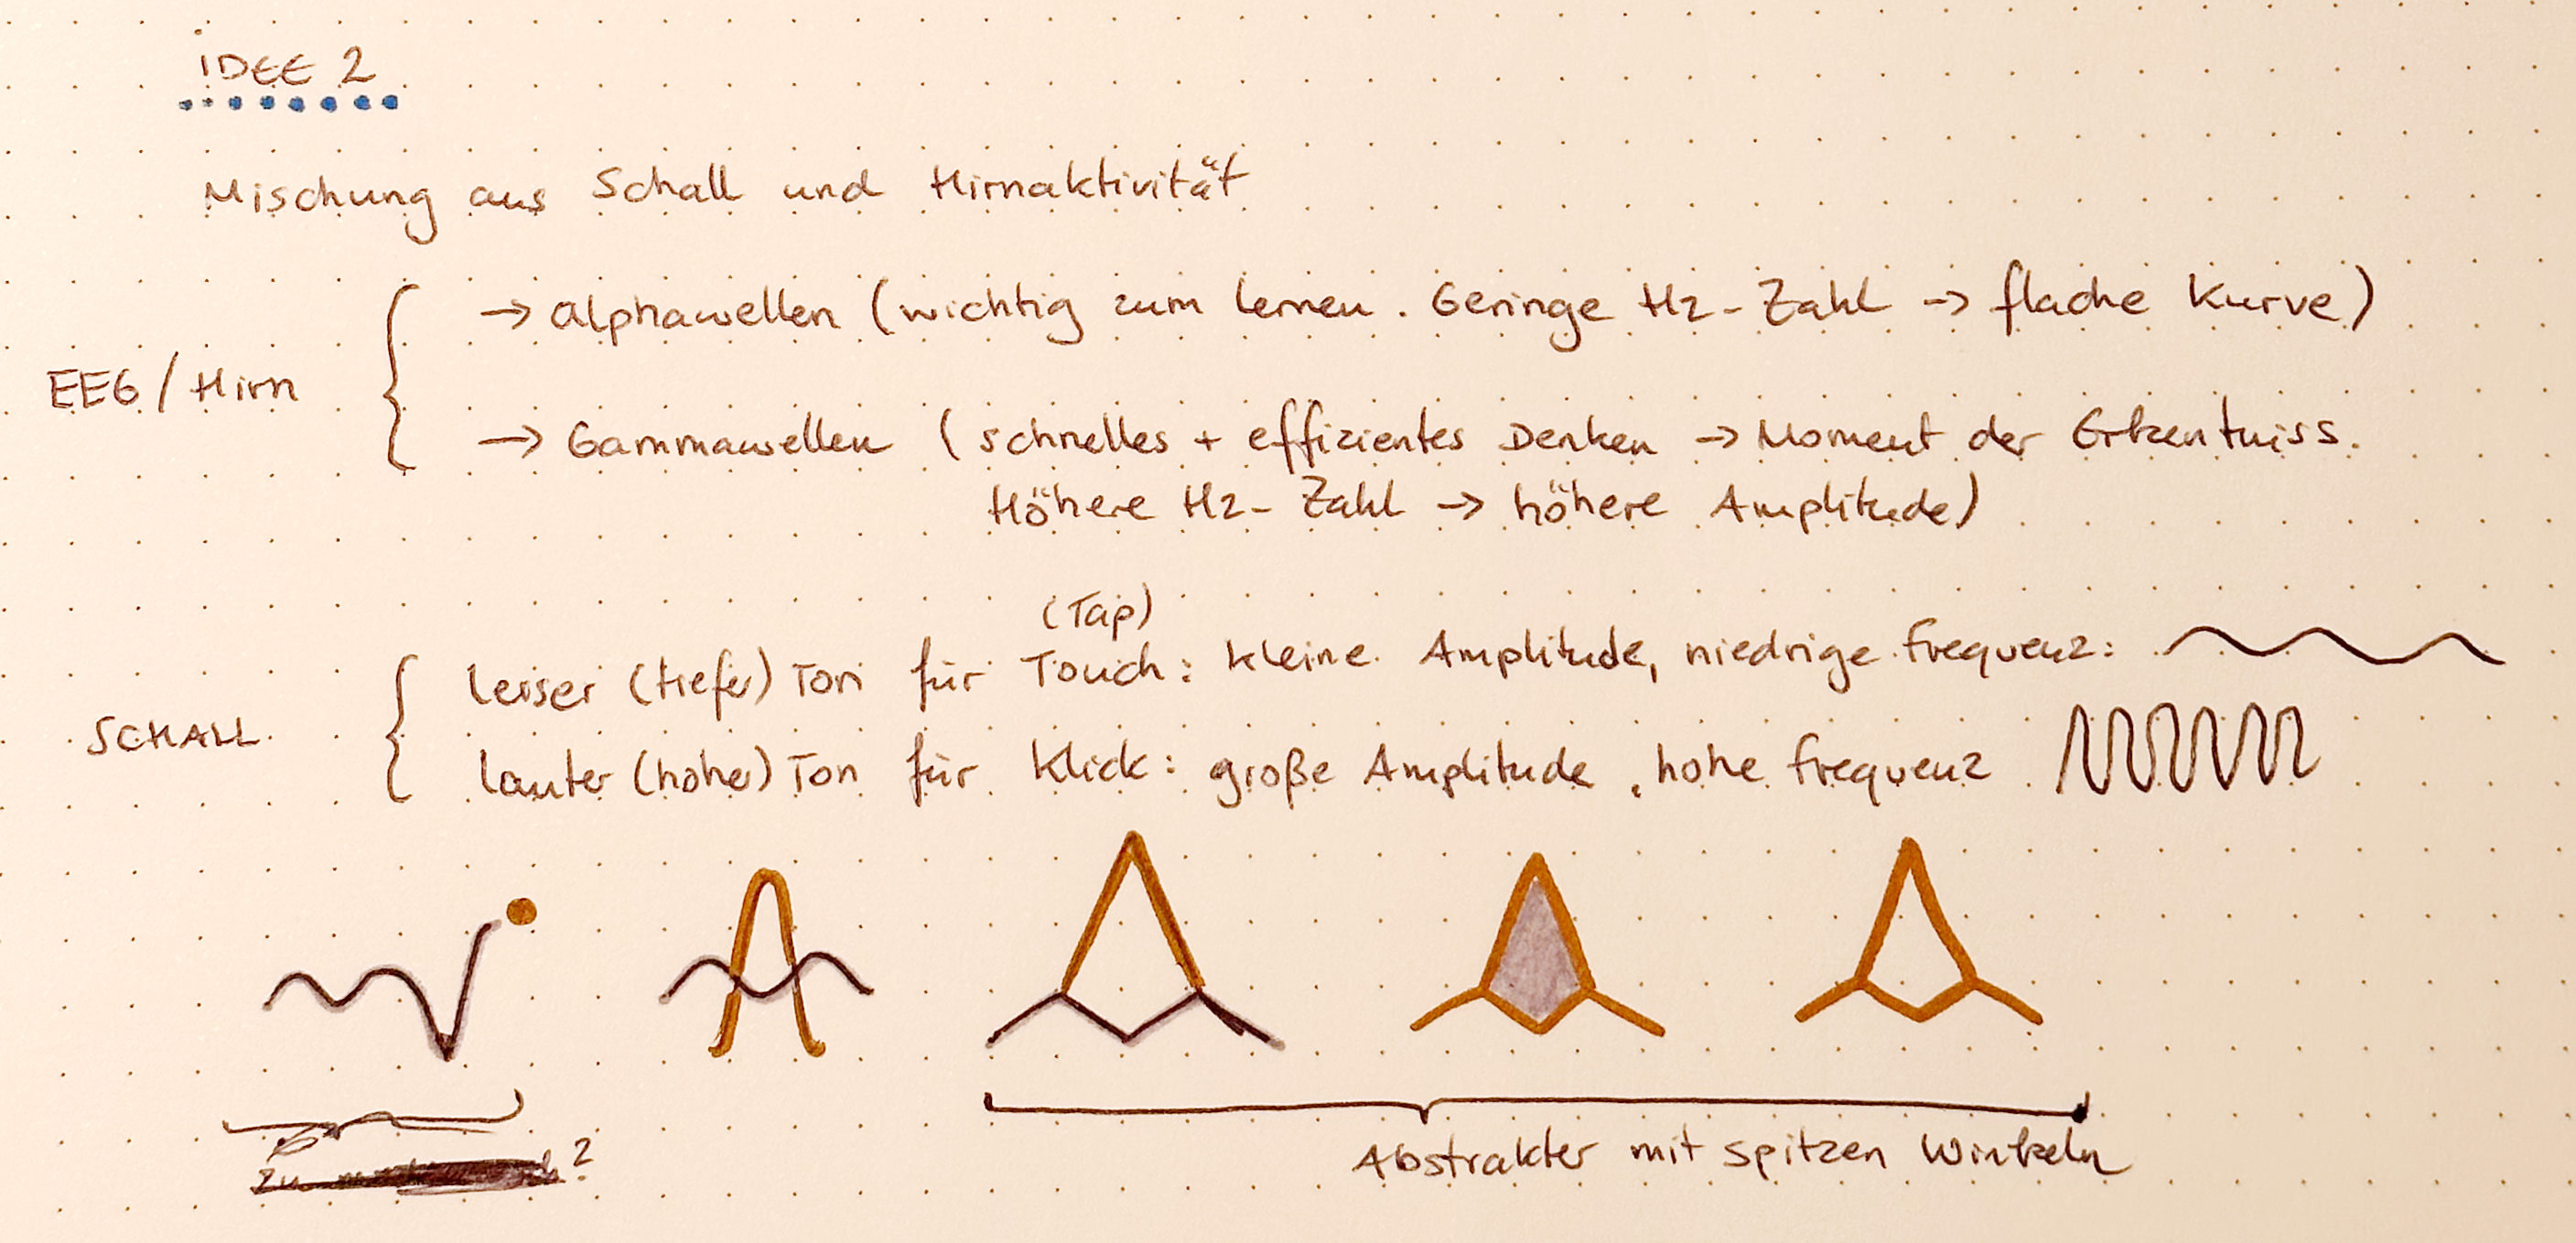 IDEE 2
Mischung aus Schall und Hirnaktivität
EEG / Hirn
→ Alphawellen (wichtig zum lernen. Geringe Hz-Zahl → flache Kurve)
→ Gammawellen (schnelles + effizientes Denken → Moment der Erkentniss.
Höhere Hz-Zahl → höhere Amplitude)
(Tap)
SCHALL
leiser (tiefer) Ton für Touch: kleine Amplitude, niedrige Frequenz:
lauter (hoher) Ton für Klick: große Amplitude, hohe Frequenz
zu ?
Abstrakter mit spitzen Winkeln